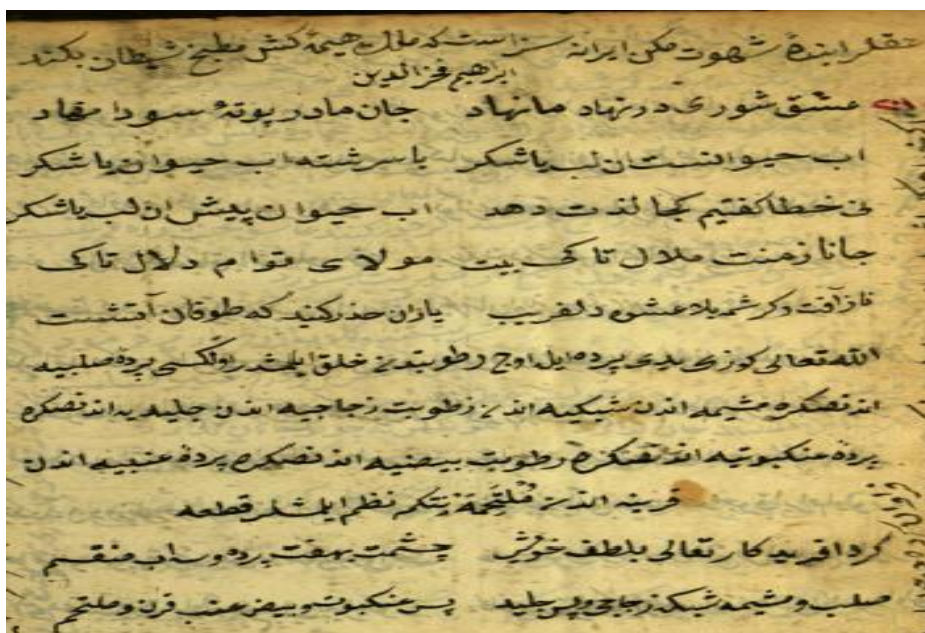 عقل را بندهٔ شهوت مکن ایرا نه سزاست که ملک هیمه کش مطبخ شیطان بکند
ابراهیم فخرالدین
عشق شوری در نهاد ما نهاد جان ما در بوتهٔ سودا نهاد
اب حیوانست ان لب یا شکر یا سرشته اب حیوان با شکر
نی خطا کفتیم کجا لذت دهد اب حیوان پیش ان لب یا شکر
جانا ز منت ملال تا کی بیت مولای توام دلال تا کی
ناز آفت و کرشمه بلا عشوه دلفریب یاران حذر کنید که طوفان آتشست
الله تعالی کوزی یدی پرده ایل اوچ رطوبتدن خلق ایلمشدر اولکسی پردهٔ صلبیه
اندنصکره مشیمه اندن شبکیه اندن رطوبت زجاجیه اندن جلیدیه اندنصکره
پردهٔ عنکبوتیه اندنصکره رطوبت بیضیه اندنصکره پردهٔ عنبیه اندن
قرنیه اندن ملتحمه نتکم نظم ایلمشلر قطعه
کرد افریدکار تعالی بلطف خویش چشمت بهفت پرده و سه اب منقسم
صلب و مشیمه شبکه زجاجی و پس جلید پس عنکبوت و بیض عنب قرن و ملتحم